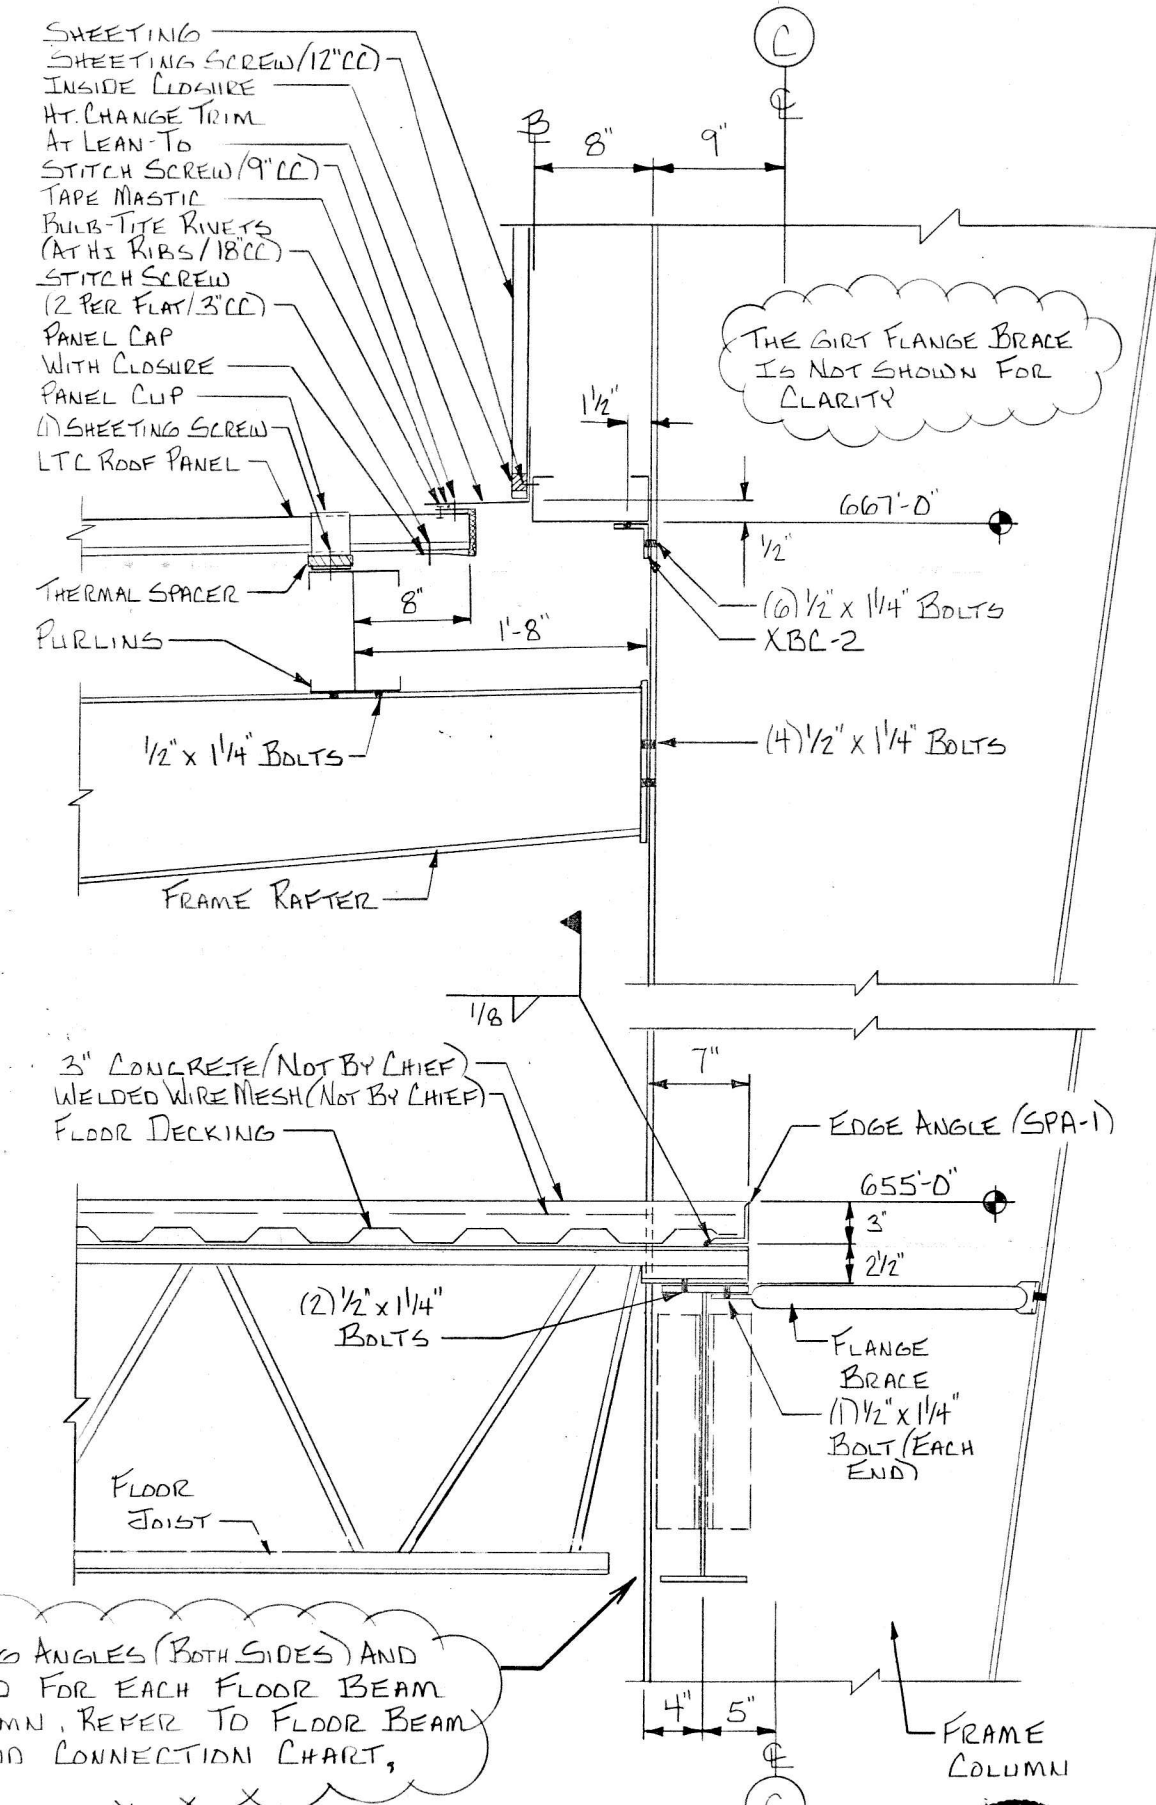 SHEETING
SHEETING SCREW/12"CC)
INSIDE CLOSURE
HT. CHANGE TRIM
AT LEAN-TO
STITCH SCREW/9"CC)
TAPE MASTIC
BULB-TITE RIVETS
(AT HI RIBS/18"CC)
STITCH SCREW
(2 PER FLAT/3"CC)
PANEL CAP
WITH CLOSURE
PANEL CLIP
(1) SHEETING SCREW
LTC ROOF PANEL
THERMAL SPACER
PURLINS
1/2" x 1 1/4" BOLTS
FRAME RAFTER
C
℄
B
8"
9"
THE GIRT FLANGE BRACE
IS NOT SHOWN FOR
CLARITY
1 1/2"
667'-0"
1/2"
8"
1'-8"
(6) 1/2" x 1 1/4" BOLTS
XBC-2
(4) 1/2" x 1 1/4" BOLTS
1/8
3" CONCRETE/(NOT BY CHIEF)
WELDED WIRE MESH(NOT BY CHIEF)
FLOOR DECKING
7"
EDGE ANGLE (SPA-1)
655'-0"
3"
2 1/2"
(2) 1/2" x 1 1/4"
BOLTS
FLANGE
BRACE
(1) 1/2" x 1 1/4"
BOLT (EACH
END)
FLOOR
JOIST
ANGLES (BOTH SIDES) AND
FOR EACH FLOOR BEAM
REFER TO FLOOR BEAM
CONNECTION CHART.
4"
5"
℄
FRAME
COLUMN